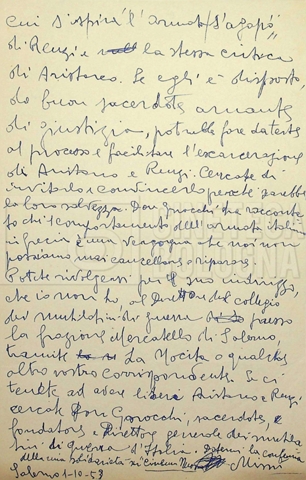 cui s'ispira l'"armata s'agapò"
di Renzi e la stessa critica
di Aristarco. Se egli è disposto,
da buon sacerdote amante
di giustizia, potrebbe fare da teste
al processo e facilitare l'escarcerazione
di Aristarco e Renzi. Cercate di
invitarlo e convincerlo perché sarebbe
la loro salvezza. Don Gnocchi ha racconta
to che il comportamento dell'armata italia
in Grecia è una vergogna che noi non
possiamo mai cancellare e riparare.
Potete rivolgervi per il suo indirizzo,
che io non ho, al Direttore del collegio
dei mutilatini di guerra presso
la frazione Mercatello di Salerno,
tramite La Nocita o qualche
altro vostro corrispondente. Se ci
tenete ad avere liberi Aristarco e Renzi
cercate Don Gnocchi, sacerdote, e
fondatore e Direttore generale dei mutila
tini di guerra d'Italia.
della mia solidarietà
Salerno 1-10-53